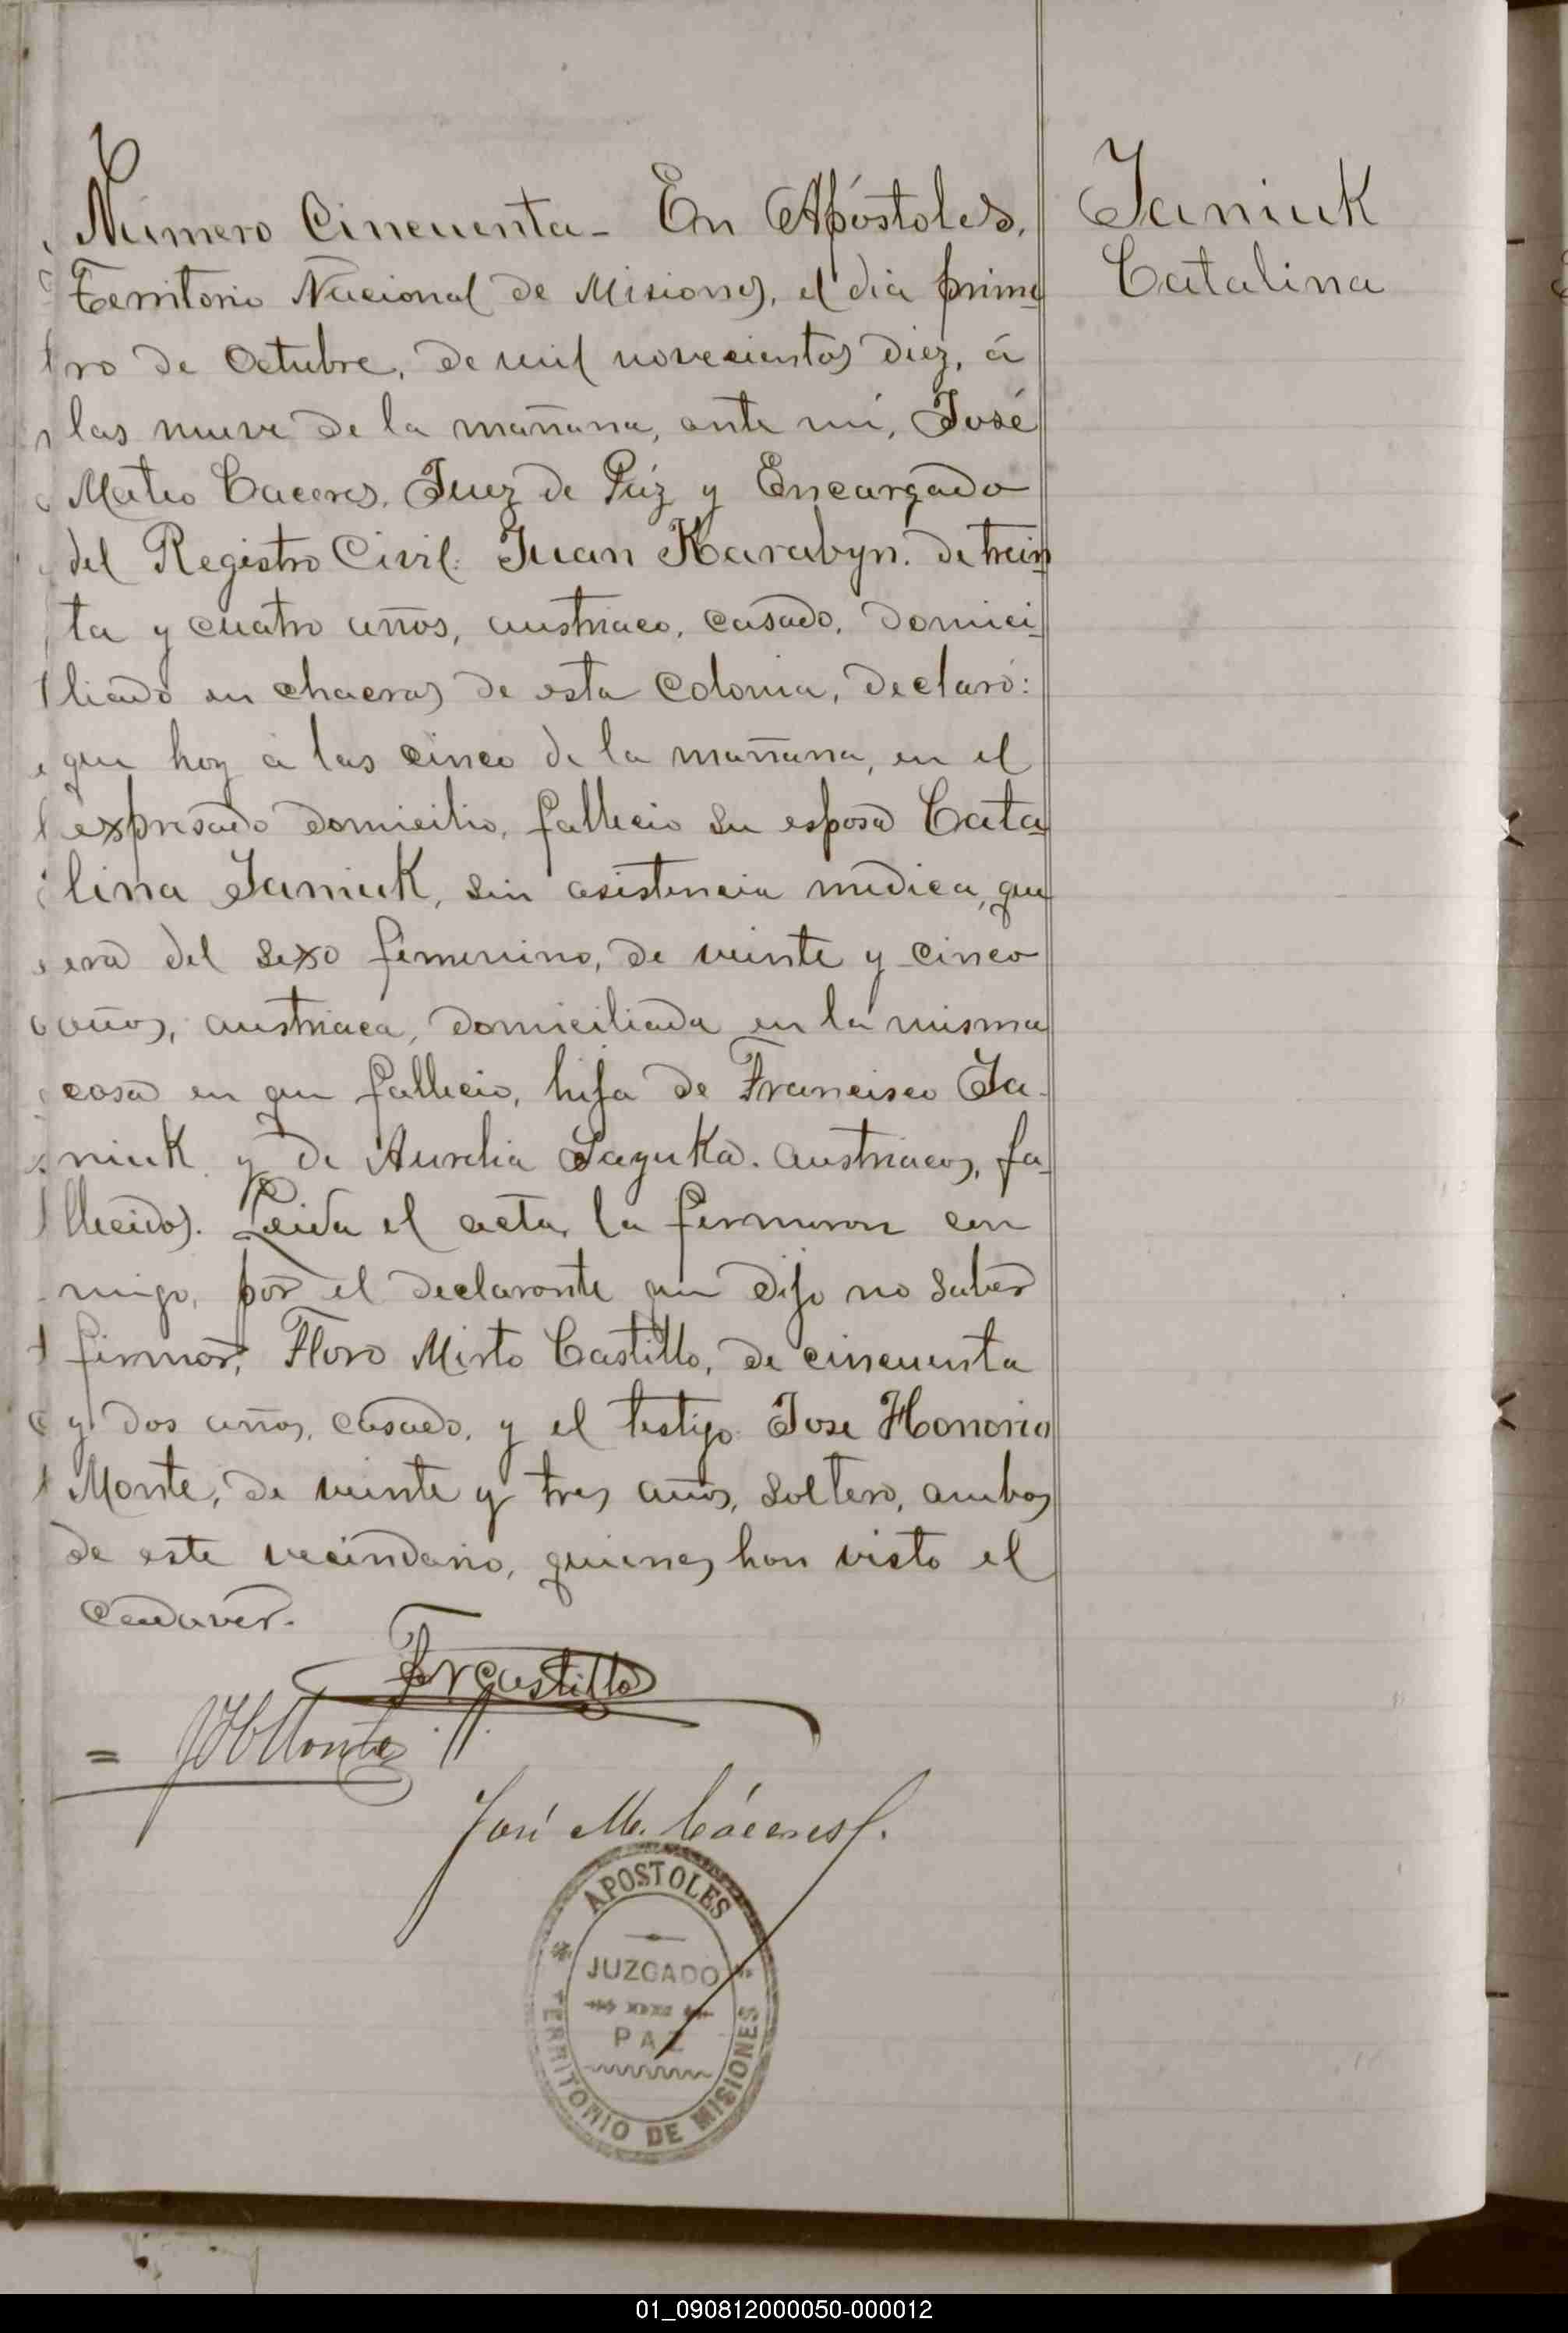 Número Cincuenta - En Apóstoles,
Territorio Nacional de Misiones, el dia prime
ro de Octubre, de mil novecientos diez, á
las nueve de la mañana, ante mi, José
Mateo Caceres, Juez de Páz y Encargado
del Registro Civil: Juan Karabyn, de trein
ta y cuatro años, austriaco, casado, domici-
liado en chacras de esta Colonia, declaró:
que hoy á las cinco de la mañana, en el
expresado domicilio, fallecio su esposa Cata
lina Janiuk, sin asistencia medica, que
era del sexo femenino, de veinte y cinco
años, austriaca, domiciliada en la misma
casa en que fallecio, hija de Francisco Ja-
niuk y de Aurelia austriacos, fa-
llecidos. Leida el acta, la firmaron con
migo, por el declarante que dijo no saber
firmar, Floro Mirto Castillo, de cincuenta
y dos años, casado, y el testigo Jose Honorio
Monte, de veinte y tres años, soltero, ambos
de este vecindario, quienes han visto el
cadaver.
Castillo
= JHMonte
José M. Cáceres
APOSTOLES
JUZGADO
PAZ
TERRITORIO DE MISIONES
Janiuk
Catalina
01_090812000050-000012